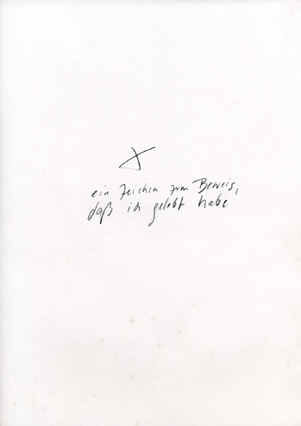 ein Zeichen zum Beweis,
daß ich gelebt habe